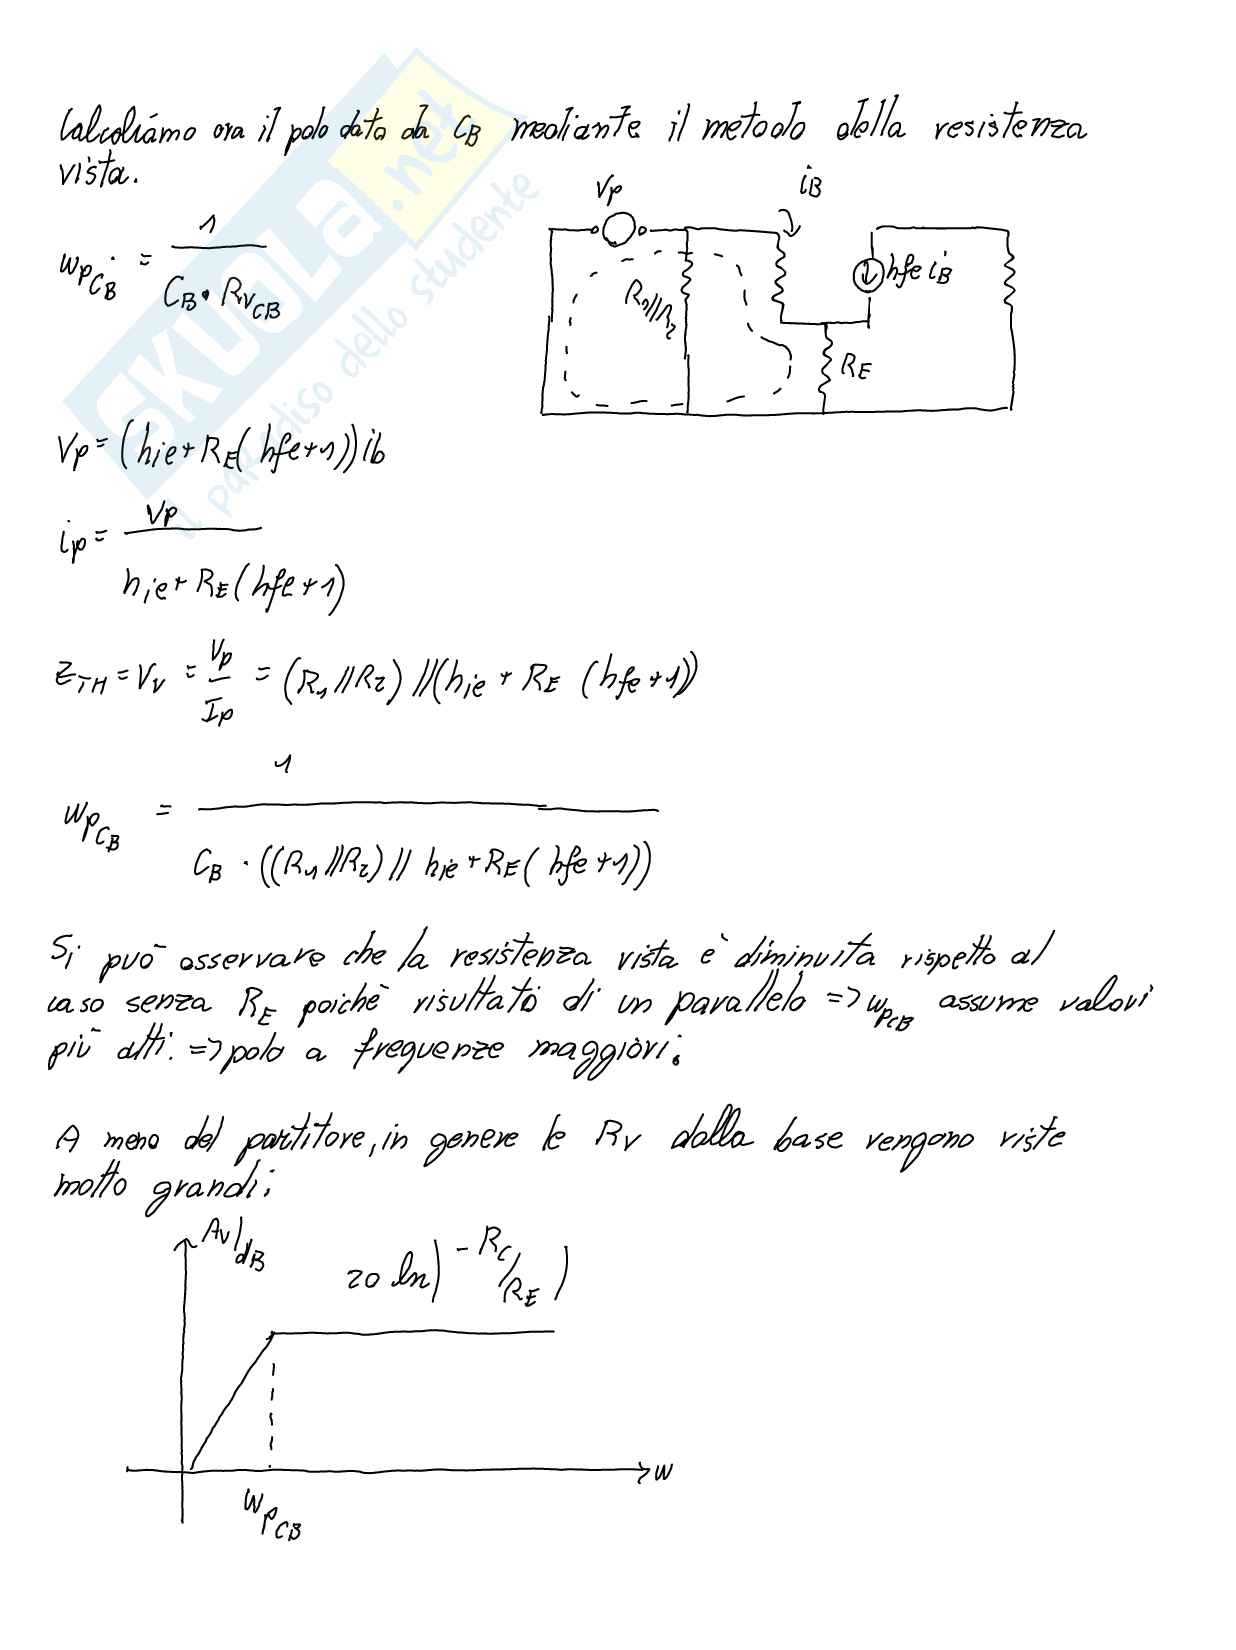 Calcoliamo ora il polo dato da CB mediante il metodo della resistenza
vista.
Vp
iB
wpCB = 1 / (CB · RVCB)
R1//R2
hfe iB
RE
Vp = (hie + RE(hfe+1)) ib
ip = Vp / (hie + RE(hfe+1))
ZTH = Vv = Vp / Ip = (R1//R2) // (hie + RE (hfe+1))
wpCB = 1 / (CB · ((R1//R2) // hie + RE(hfe+1)))
Si può osservare che la resistenza vista è diminuita rispetto al
caso senza RE poichè risultato di un parallelo => wpCB assume valori
più alti. => polo a frequenze maggiori.
A meno del partitore, in genere le RV dalla base vengono viste
molto grandi;
Av|dB
20 ln|-RC/RE|
w
wpCB
SKUOLA.net
il paradiso dello studente